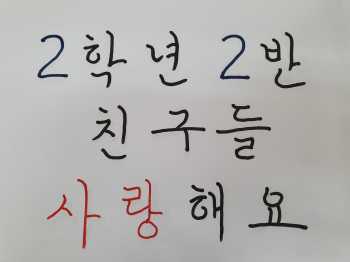 2학년 2반
친구들
사랑해요